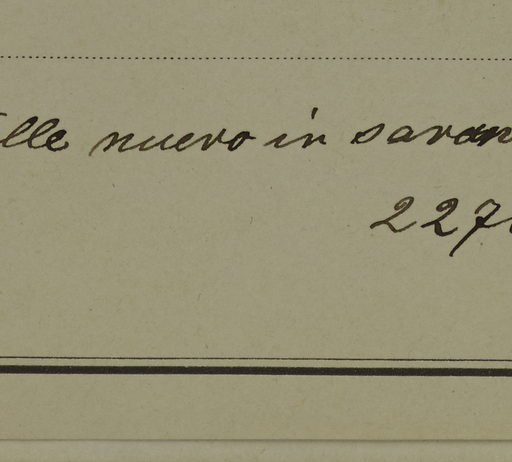 lle nuevo in savan
227